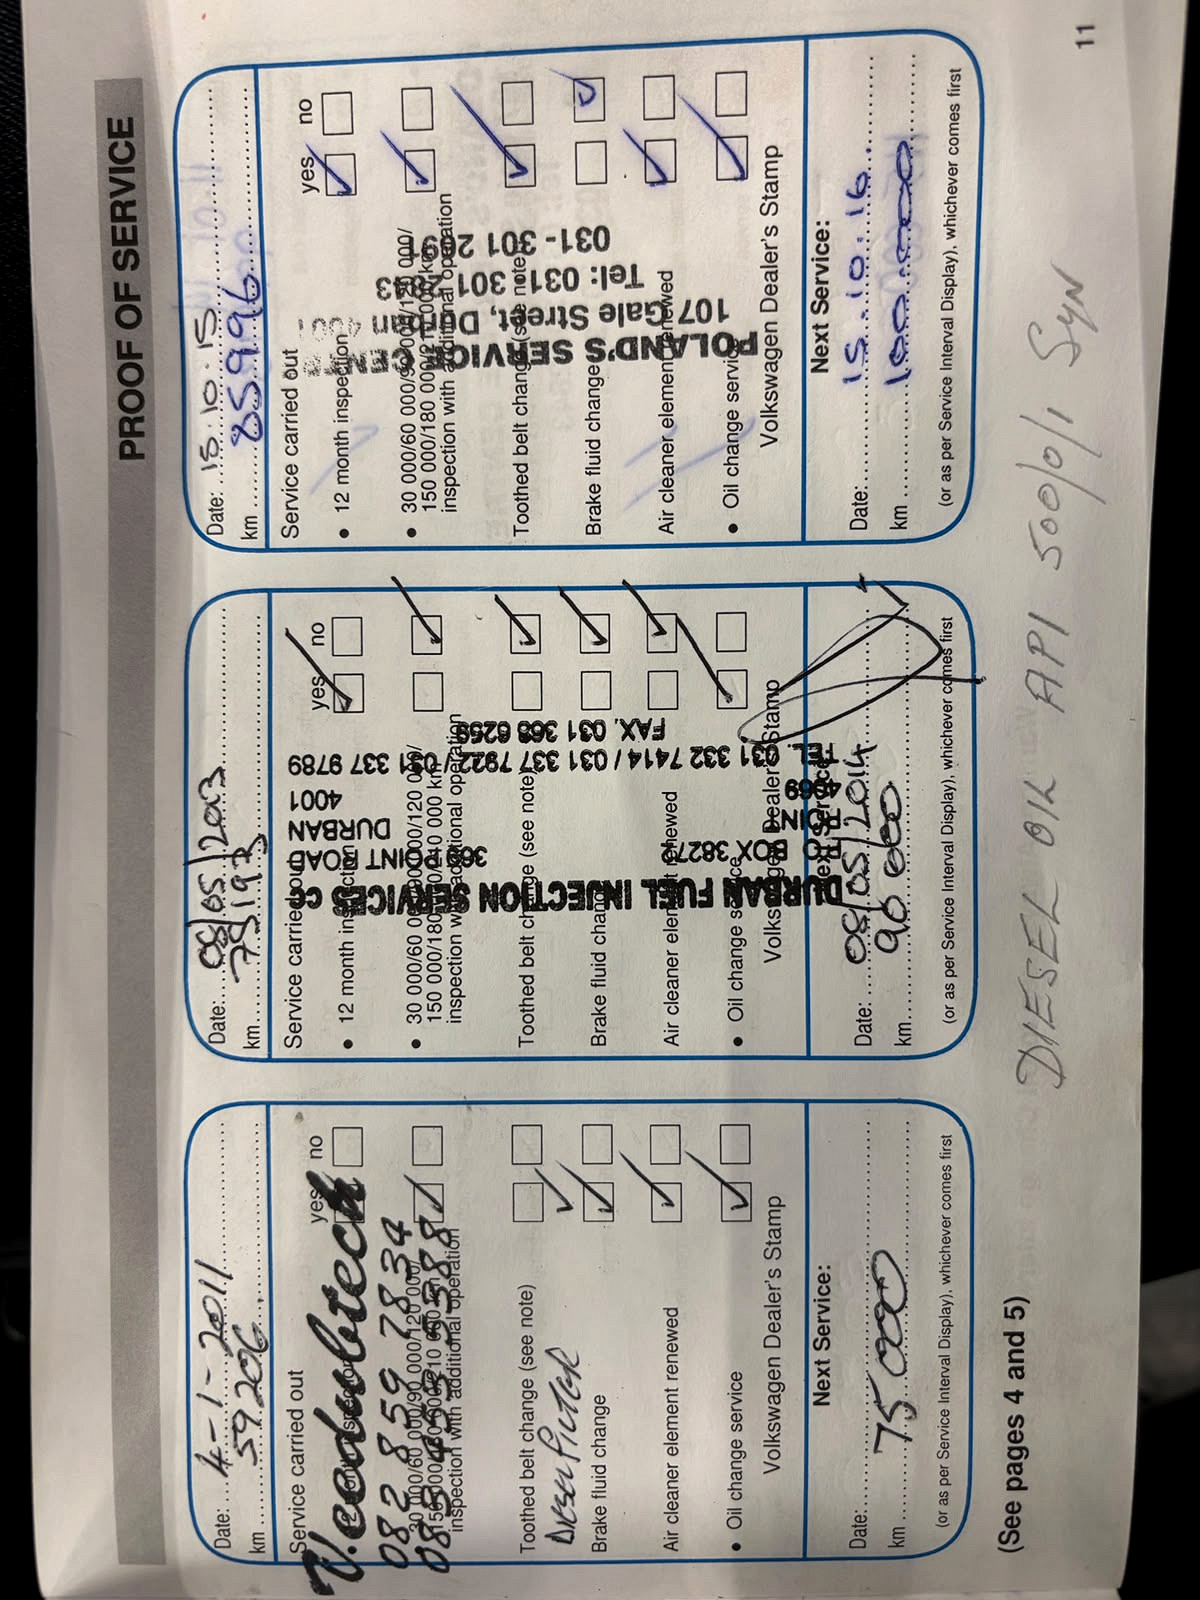 PROOF OF SERVICE
Date: 4-1-2011
km 59206
Service carried out
yes no
V.eedubtech
082 859 7834
083 453 5388
• 12 month inspection
• 30 000/60 000/90 000/120 000/
150 000/180 000/210 000 km
inspection with additional operation
Toothed belt change (see note)
Diesel Filter
Brake fluid change
Air cleaner element renewed
• Oil change service
Volkswagen Dealer's Stamp
Next Service:
Date:
km 75 000
(or as per Service Interval Display), whichever comes first
Date: 08/05/2013
km 75193
Service carried out
yes no
• 12 month inspection
• 30 000/60 000/90 000/120 000/
150 000/180 000/210 000 km
inspection with additional operation
Toothed belt change (see note)
Brake fluid change
Air cleaner element renewed
• Oil change service
Volkswagen Dealer's Stamp
DURBAN FUEL INJECTION SERVICES cc
369 POINT ROAD
DURBAN
4001
P.O. BOX 38272
POINT
4069
TEL. 031 332 7414 / 031 337 7922 / 031 337 9789
FAX. 031 368 6259
Next Service:
Date: 08/05/2014
km 90 000
(or as per Service Interval Display), whichever comes first
Date: 15.10.15
km 85996
Service carried out
yes no
• 12 month inspection
• 30 000/60 000/90 000/120 000/
150 000/180 000/210 000 km
inspection with additional operation
Toothed belt change (see note)
Brake fluid change
Air cleaner element renewed
• Oil change service
Volkswagen Dealer's Stamp
POLAND'S SERVICE CENTRE
107 Gale Street, Durban 4001
Tel: 031 301 2843
031 - 301 2091
Next Service:
Date: 15.10.16
km 100 000
(or as per Service Interval Display), whichever comes first
(See pages 4 and 5)
DIESEL OIL API 500/01 Syn
11